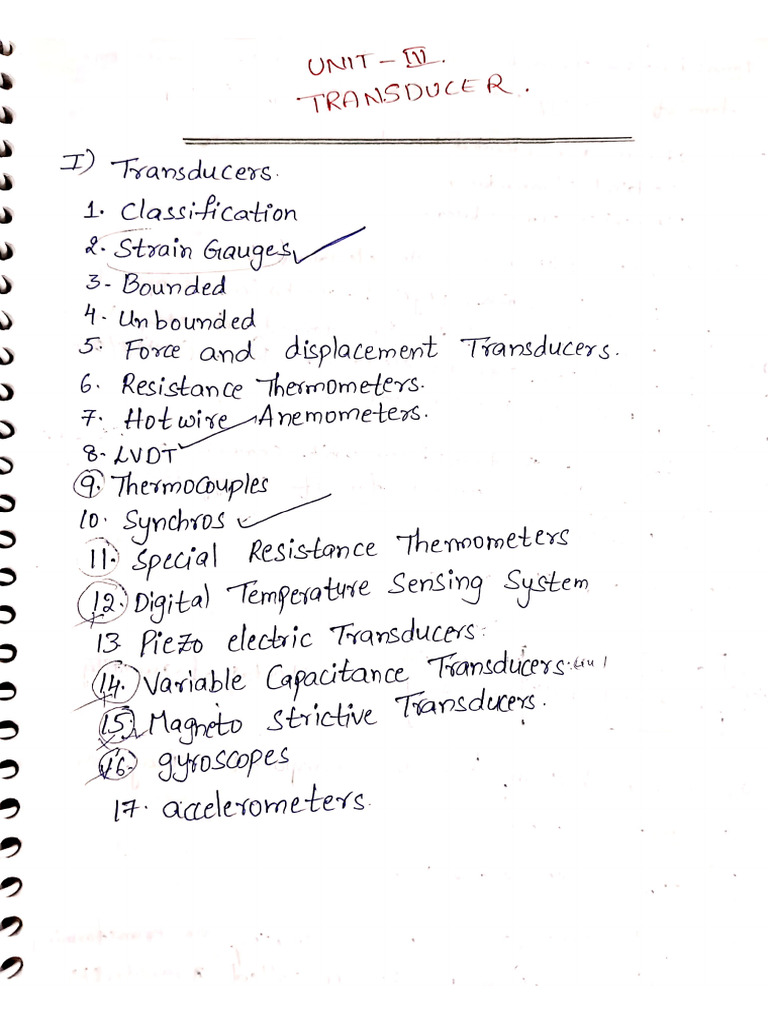 UNIT - IV.
TRANSDUCER.
I) Transducers.
1. Classification
2. Strain Gauges
3- Bounded
4. Unbounded
5. Force and displacement Transducers.
6. Resistance Thermometers.
7. Hotwire Anemometers.
8- LVDT
9. Thermocouples
10. Synchros
11. Special Resistance Thermometers
12. Digital Temperature Sensing System
13. Piezo electric Transducers.
14. Variable Capacitance Transducers.
15. Magneto Strictive Transducers.
16- gyroscopes
17. accelerometers.